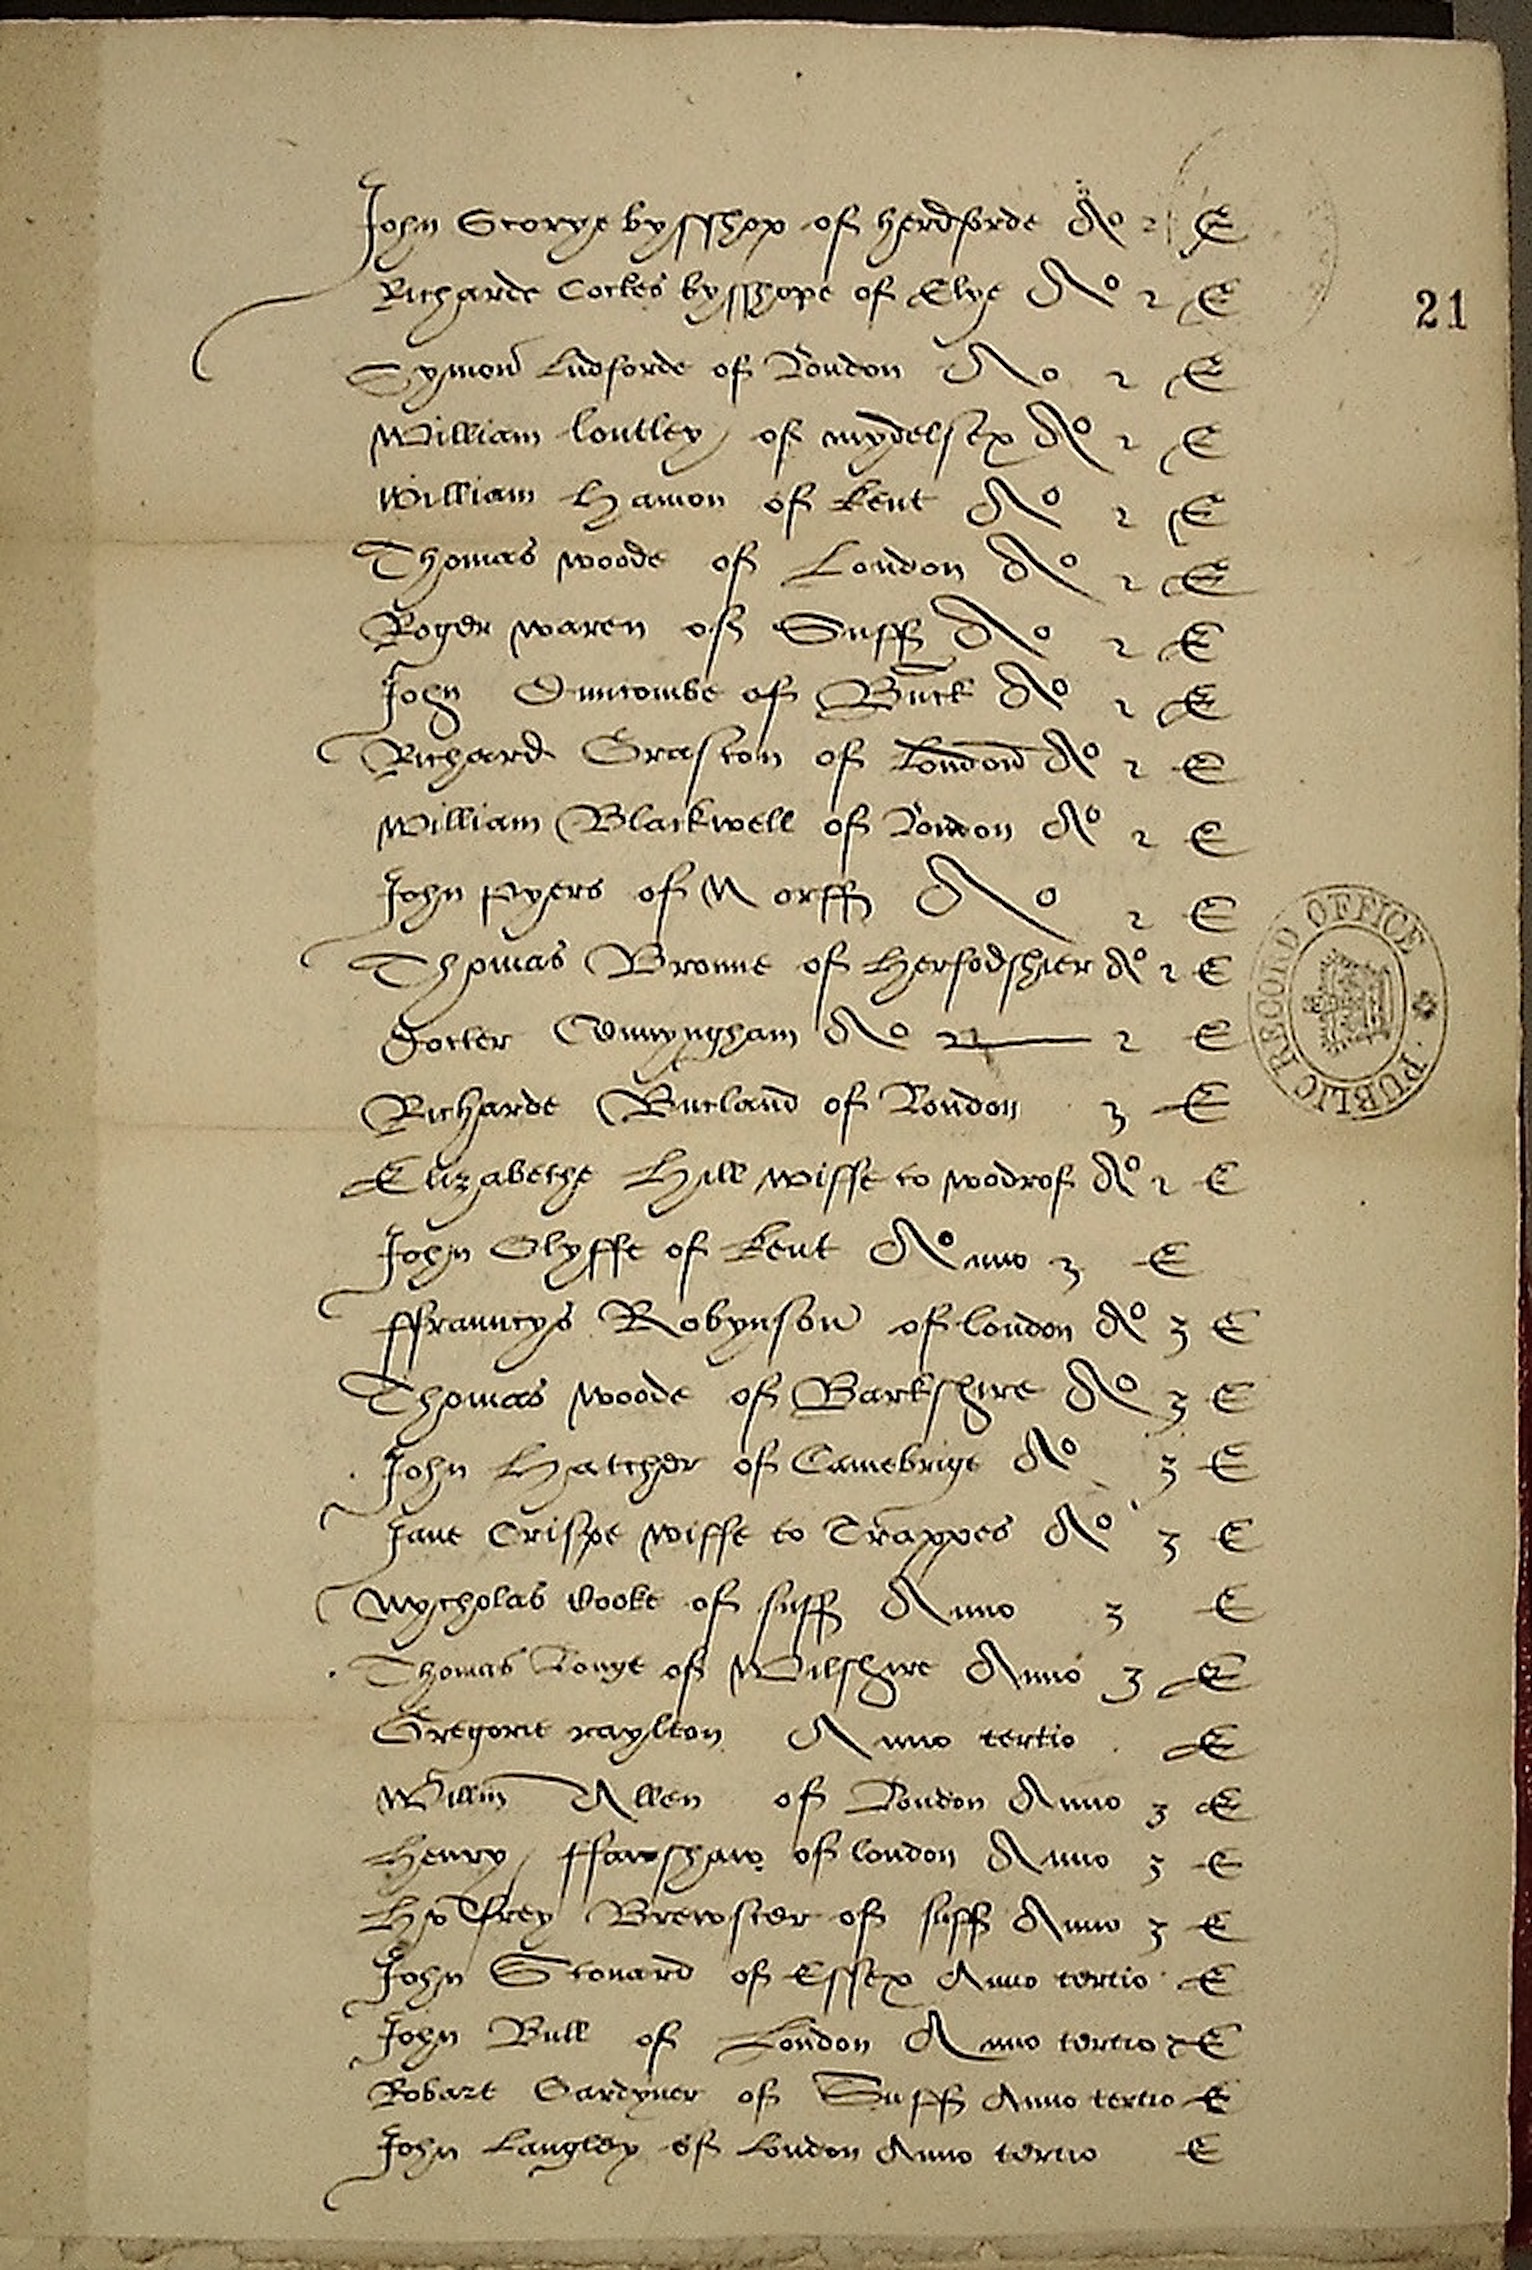 John Scorye bysshop of herdforde Ao 2 E
Richarde Cockes bysshope of Elye Ao 2 E
21
Symon Ludforde of London Ao 2 E
William loutley of mydelsex Ao 2 E
William Hamon of kent Ao 2 E
Thomas woode of London Ao 2 E
Roger waren of Suff Ao 2 E
John Duncombe of Buck Ao 2 E
Richard Grafton of London Ao 2 E
William Blackwell of London Ao 2 E
John pyers of Norff Ao 2 E
Thomas Bronne of Herfodshier Ao 2 E
Docter Ao 2 E
Richarde Bucland of London 3 E
Elizabethe Hill wiffe to wodrof Ao 2 E
John Olyffe of kent Ao nno 3 E
ffrauncys Robynson of london Ao 3 E
Thomas woode of Barkshire Ao 3 E
John Hatcher of Camebrige Ao 3 E
Jane Crispe wiffe to Trappes Ao 3 E
Nycholas Cooke of suff Anno 3 E
Thomas Longe of Wilshire Anno 3 E
Gregorie raylton Anno tertio E
Willm Allen of London Anno 3 E
Henry ffanshaw of london Anno 3 E
Brewster of suff Anno 3 E
John Stonard of Essex Anno tertio E
John Bull of London Anno tertio E
Robart Gardyner of Suff Anno tertio E
John Langley of London Anno tertio E
PUBLIC RECORD OFFICE